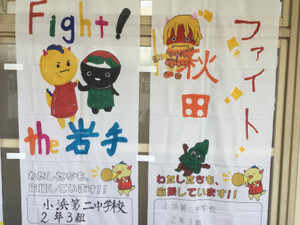 Fight!
the 岩手
わたしたちも、
応援しています!!
小浜第二中学校
2年3組
ファイト
秋田
わたしたちも、
応援しています!!
小浜第二中学校
2年3組